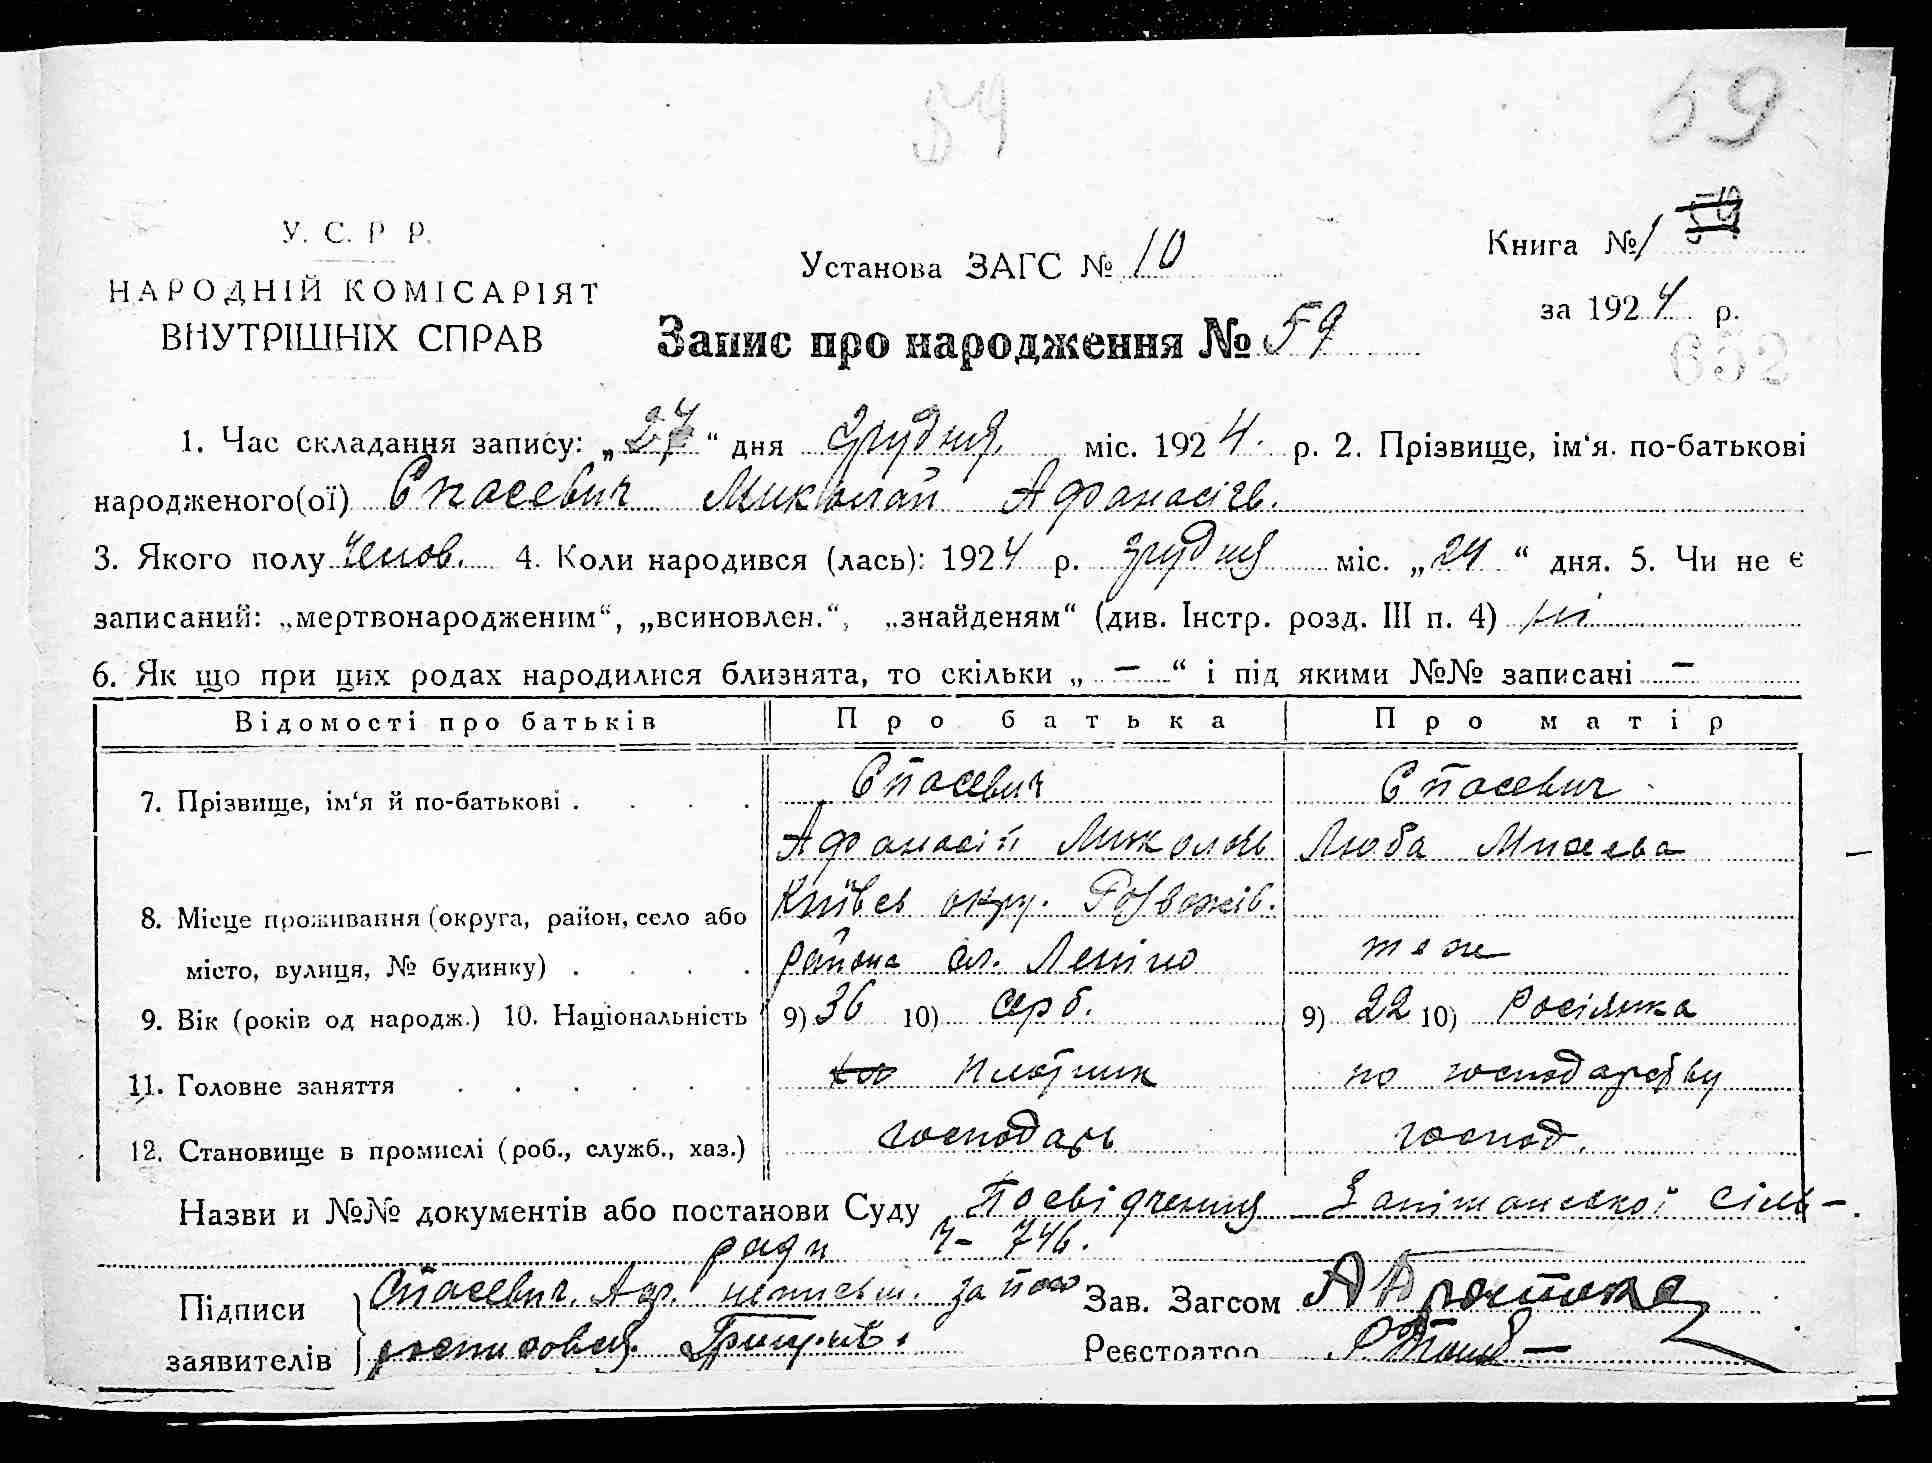 54
59
У. С. Р Р.
НАРОДНІЙ КОМІСАРІЯТ
ВНУТРІШНІХ СПРАВ
Установа ЗАГС № 10
Книга № 1
за 1924 р.
652
Запис про народження № 59
1. Час складання запису: „27“ дня грудня міс. 1924. р. 2. Прізвище, ім‘я. по-батькові
народженого(ої) Спасевич Миколай Афонасієв.
3. Якого полу Челов. 4. Коли народився (лась): 1924 р. грудня міс. „24“ дня. 5. Чи не є
записаний: „мертвонародженим“, „всиновлен.“, „знайденям“ (див. Інстр. розд. III п. 4) ні
6. Як що при цих родах народилися близнята, то скільки „ — “ і під якими №№ записані —
Відомості про батьків Про батька Про матір
7. Прізвище, ім‘я й по-батькові . . . . Спасевич Спасевич
Афонасій Микол Люба Мисеева
8. Місце проживання (округа, район, село або Київсь окру. Розважів.
місто, вулиця, № будинку) . . . . района сл. Леніно теж
9. Вік (років од народж.) 10. Національність 9) 36 10) серб. 9) 22 10) Росіянка
11. Головне заняття . . . . . . Плотник по господарству
12. Становище в промислі (роб., служб., хаз.) господарь господ.
Назви и №№ документів або постанови Суду Посвідчення сіль-
ради Ч- 746.
Підписи Спасевич. Аф. неписьм. за него Зав. Загсом
заявителів росписовся Реєстратор